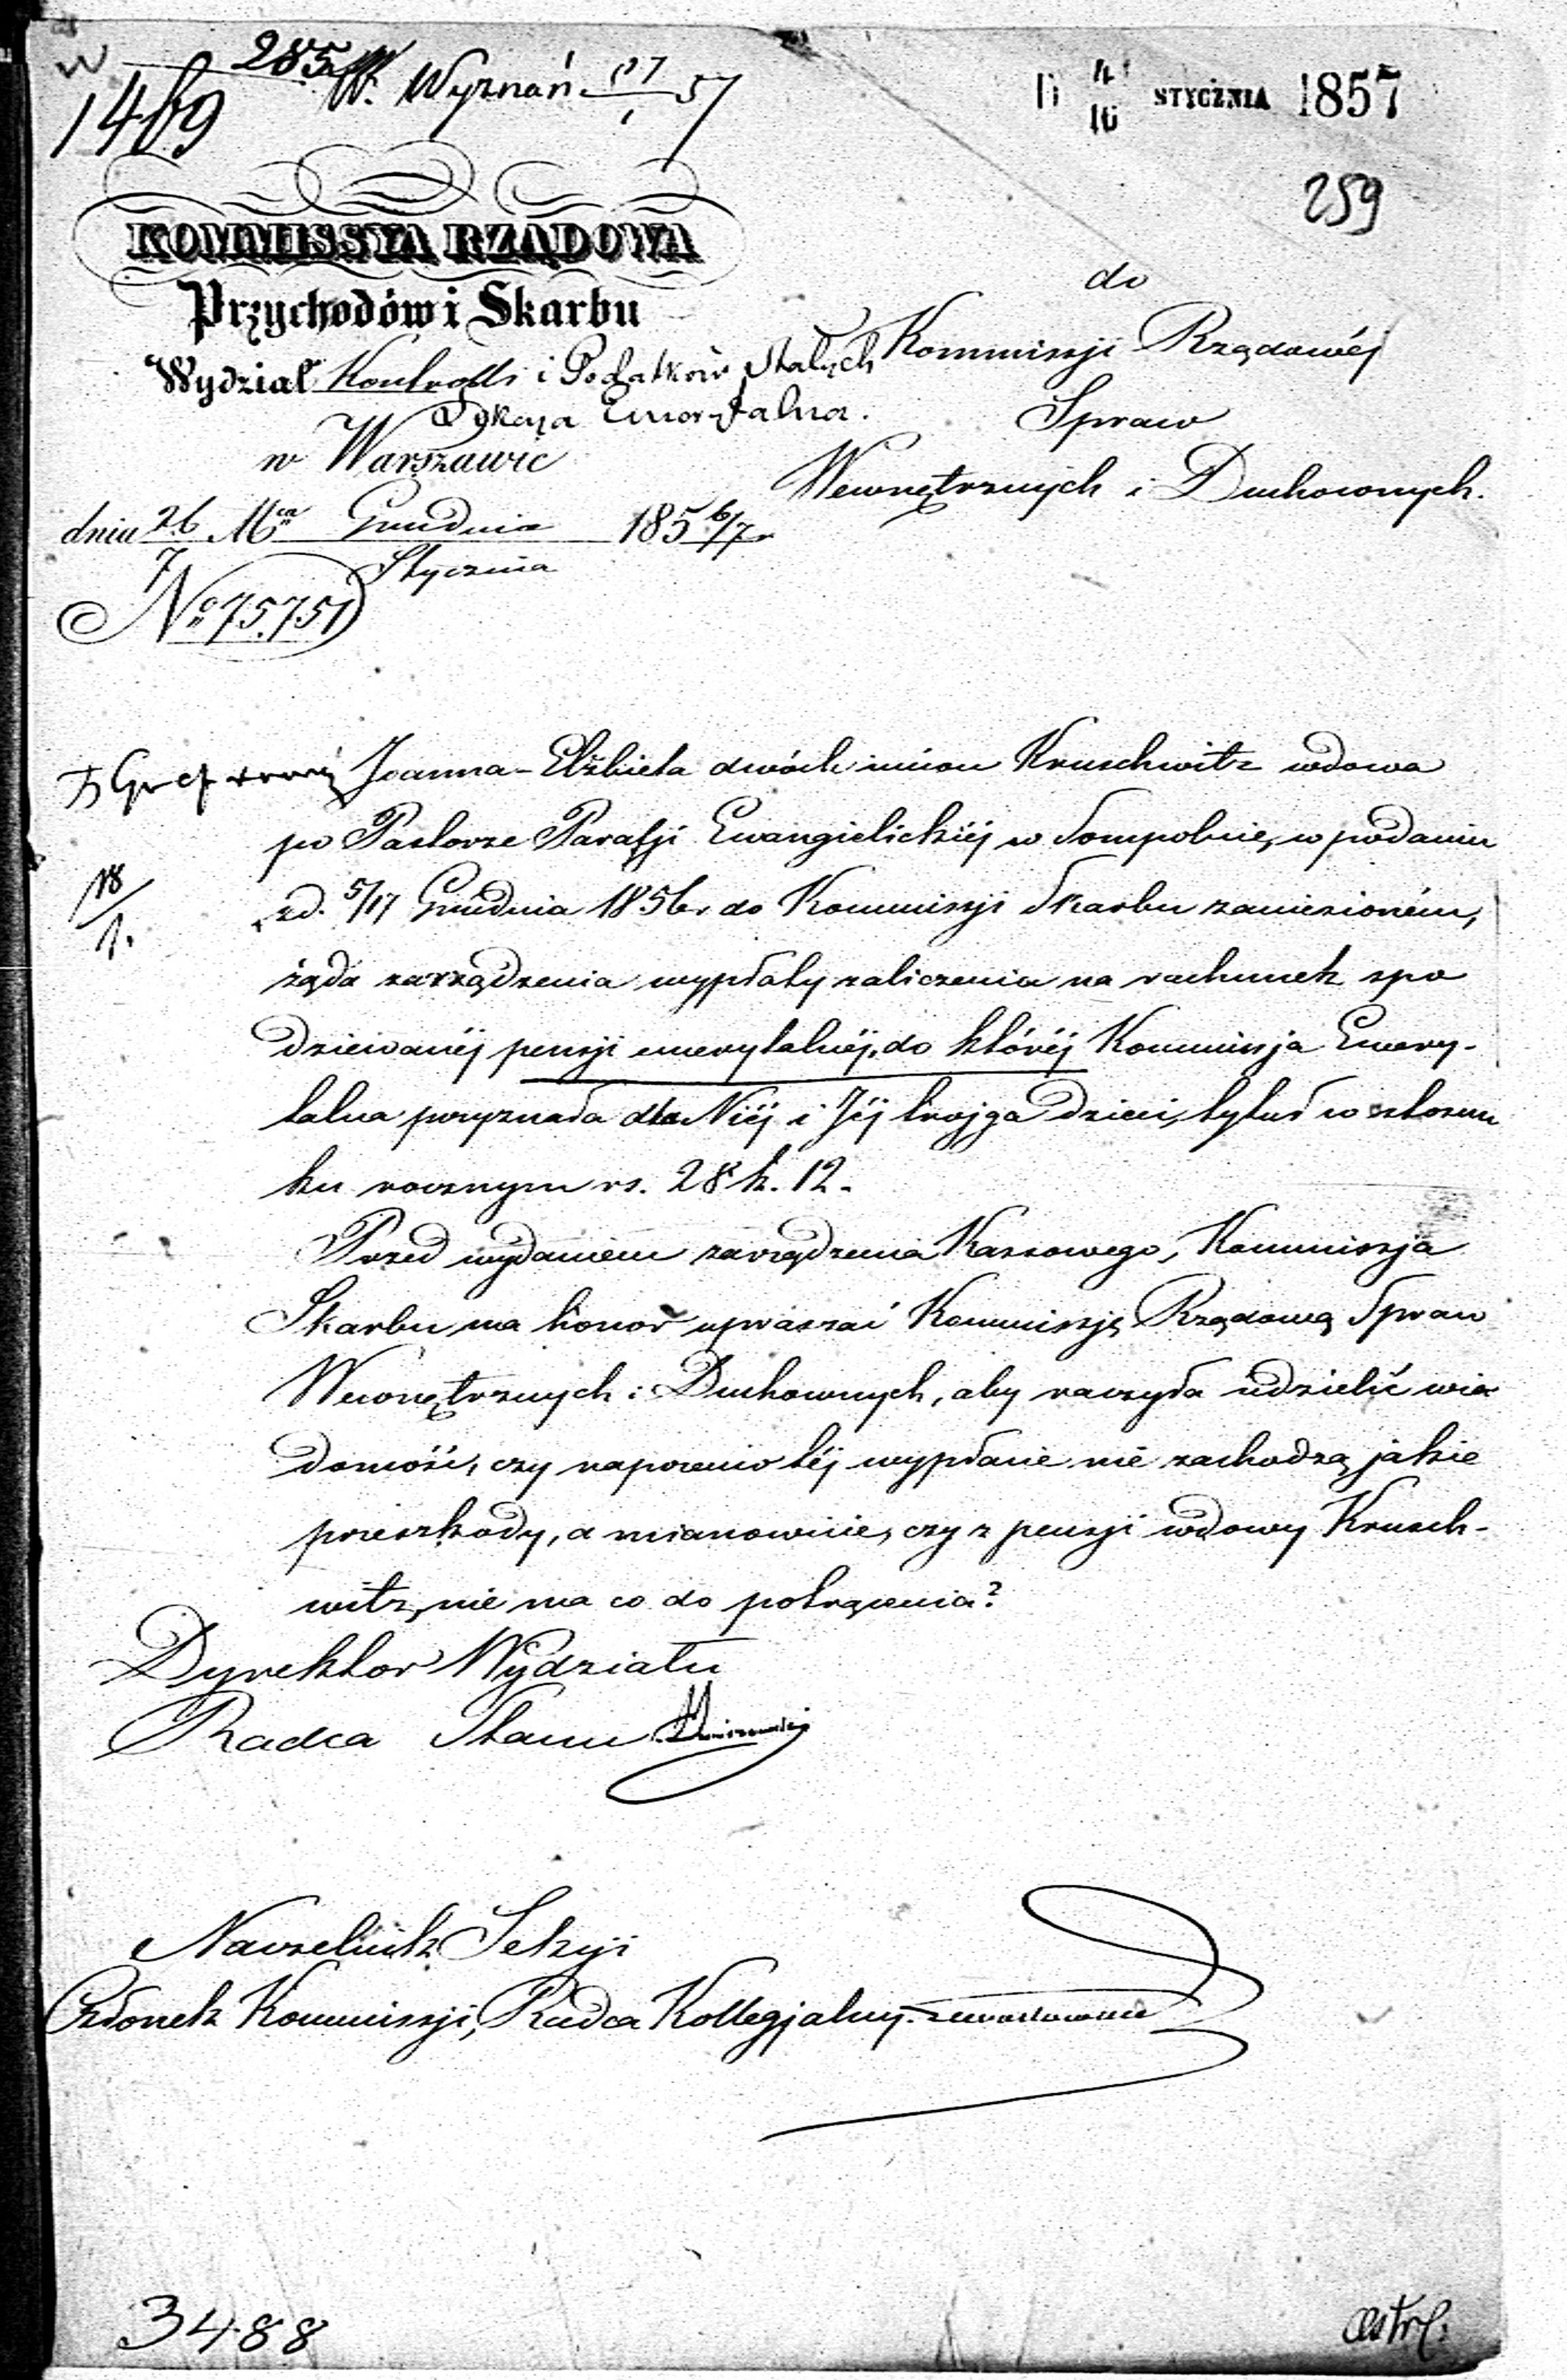 285 W. Wyznań 17/1 57
1469
4/16 STYCZNIA 1857
259
KOMMISSYA RZĄDOWA
Przychodów i Skarbu
Wydział Kontrolli i Podatków Stałych
Sekcja Emerytalna.
w Warszawie
dnia 26 Mca Grudnia 1856/7 r
7 Stycznia
No 75,751
do
Kommissji Rządowéj
Spraw
Wewnętrznych i Duchownych.
Joanna-Elżbieta dwóch imion Kruschwitz wdowa
po Pastorze Parafji Ewangielickiéj w Sompolnie, w podaniu
z d. 5/17 Grudnia 1856 r. do Kommissji Skarbu zaniesioném,
żąda zarządzenia wypłaty zaliczenia na rachunek spo
dziewanéj pensji emerytalnéj, do któréj Kommissja Emery-
talna przyznała dla Niéj i Jéj trojga dzieci, tytuł w stosun
ku rocznym rs. 28 k. 12.
Przed wydaniem zarządzenia Kassowego, Kommissja
Skarbu ma honor upraszać Kommissję Rządową Spraw
Wewnętrznych i Duchownych, aby raczyła udzielić wia
domość, czy naprzeciw téj wypłacie nie zachodzą jakie
przeszkody, a mianowicie, czy z pensji wdowy Krusch-
witz, nie ma co do potrącenia?
18/1.
Dyrektor Wydziału
Radca Stanu
Naczelnik Sekcyi
Członek Kommissji, Radca Kollegjalny
3488